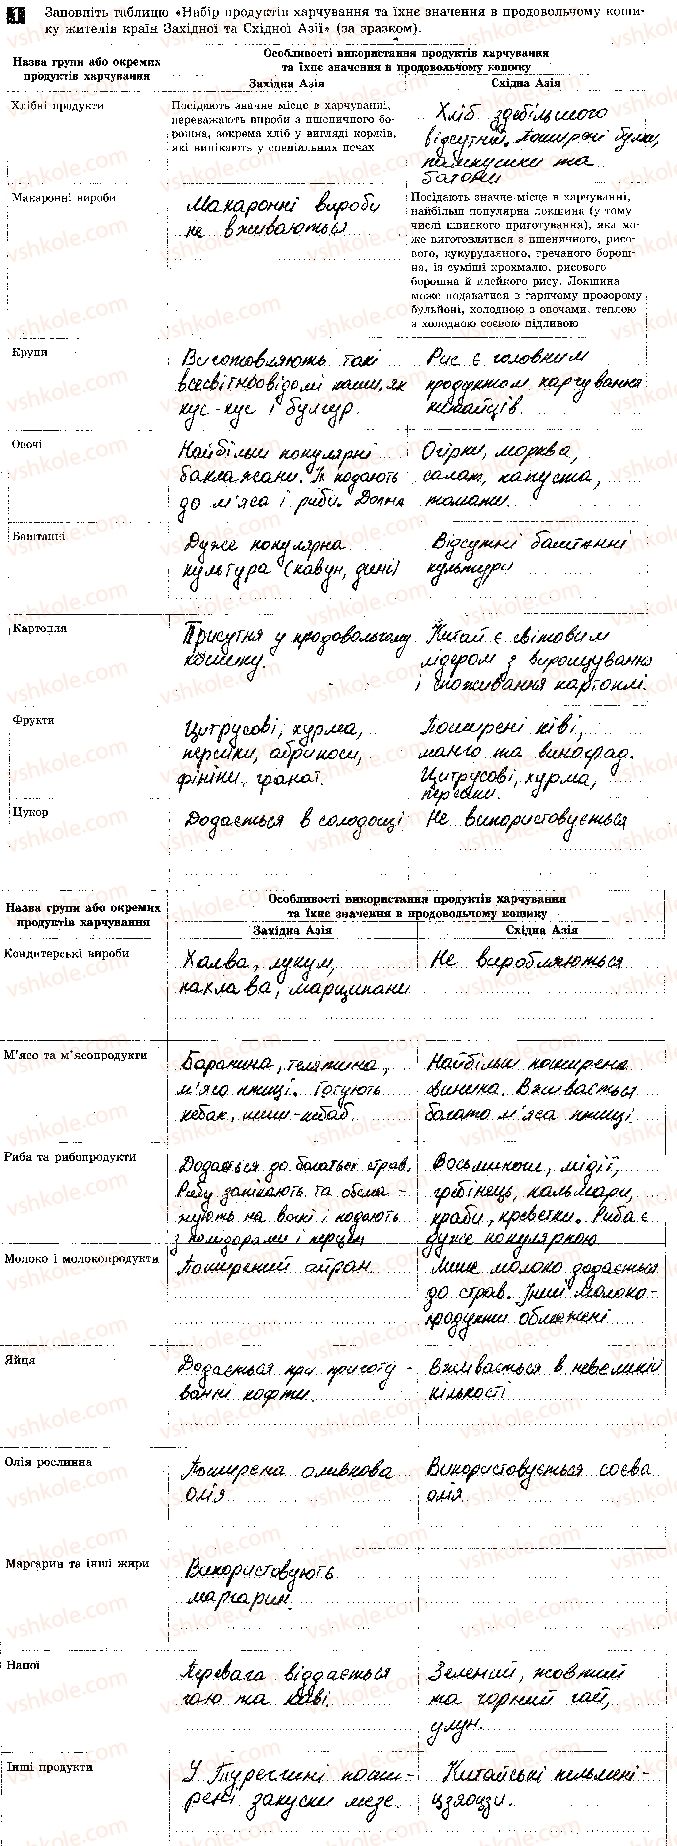 1 Заповніть таблицю «Набір продуктів харчування та їхнє значення в продовольчому коши-
ку жителів країн Західної та Східної Азії» (за зразком).
Назва групи або окремих
продуктів харчування
Особливості використання продуктів харчування
та їхнє значення в продовольчому кошику
Західна Азія
Східна Азія
Хлібні продукти
Посідають значне місце в харчуванні,
переважають вироби з пшеничного бо-
рошна, зокрема хліб у вигляді коржів,
які випікають у спеціальних печах
Хліб здебільшого
відсутній. Поширені булки,
пампушки та
батони
Макаронні вироби
Макаронні вироби
не вживаються
Посідають значне місце в харчуванні,
найбільш популярна локшина (у тому
числі швидкого приготування), яка мо-
же виготовлятися з пшеничного, рисо-
вого, кукурудзяного, гречаного борош-
на, із суміші крохмалю, рисового
борошна й клейкого рису. Локшина
може подаватися в гарячому прозорому
бульйоні, холодною з овочами, теплою
з холодною соєвою підливою
Крупи
Виготовляють такі
всесвітньовідомі каши, як
кус-кус і булгур.
Рис є головним
продуктом харчування
китайців.
Овочі
Найбільш популярні
баклажани. Їх подають
до м'яса і риби. Долма
Огірки, морква,
салат, капуста,
томати.
Баштанні
Дуже популярна
культура (кавун, дині)
Відсутні баштанні
культури
Картопля
Присутня у продовольчому
кошику.
Китай є світовим
лідером з вирощування
і споживання картоплі.
Фрукти
Цитрусові, хурма,
персики, абрикоси,
фініки, гранат.
Поширені ківі,
манго та виноград.
Цитрусові, хурма,
персики.
Цукор
Додається в солодощі
Не використовується
Назва групи або окремих
продуктів харчування
Особливості використання продуктів харчування
та їхнє значення в продовольчому кошику
Західна Азія
Східна Азія
Кондитерські вироби
Халва, лукум,
пахлава, марципани
Не виробляються
М'ясо та м'ясопродукти
Баранина, телятина,
м'ясо птиці. Готують
кебаб, шиш-кебаб.
Найбільш поширена
свинина. Вживається
багато м'яса птиці
Риба та рибопродукти
Додається до багатьох страв.
Рибу запікають та обсма-
жують на вогні і подають
з помідорами і перцем
Восьминоги, мідії,
гребінець, кальмари,
краби, креветки. Риба є
дуже популярною
Молоко і молокопродукти
Поширений айран
Лише молоко додається
до страв. Інші молоко-
продукти обмежені
Яйця
Додається при приготу-
ванні кофти.
Вживається в невеликій
кількості
Олія рослинна
Поширена оливкова
олія
Використовується соєва
олія
Маргарин та інші жири
Використовують
маргарин.
Напої
Перевага віддається
чаю та каві.
Зелений, жовтий
та чорний чай,
улун.
Інші продукти
У Туреччині поши-
рені закуски мезе.
Китайські пельмені-
цзяоцзи.